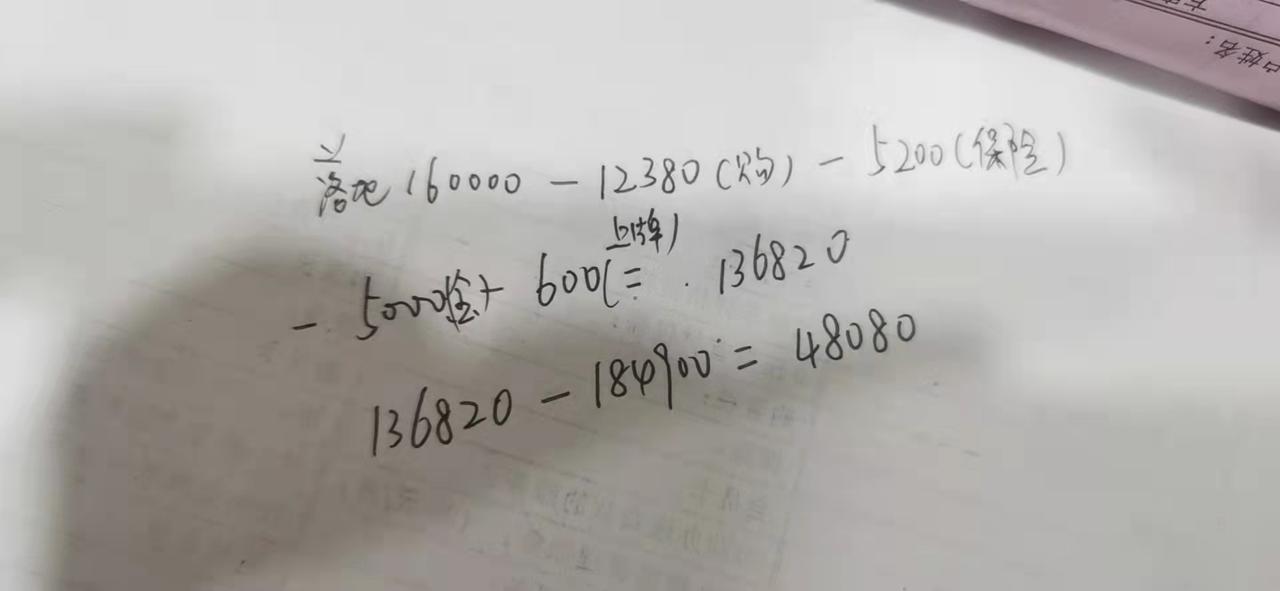 落地160000-12380(购)-5200(保险)
上牌)
-5000金+600(= 136820
136820-184900=48080
户姓名: